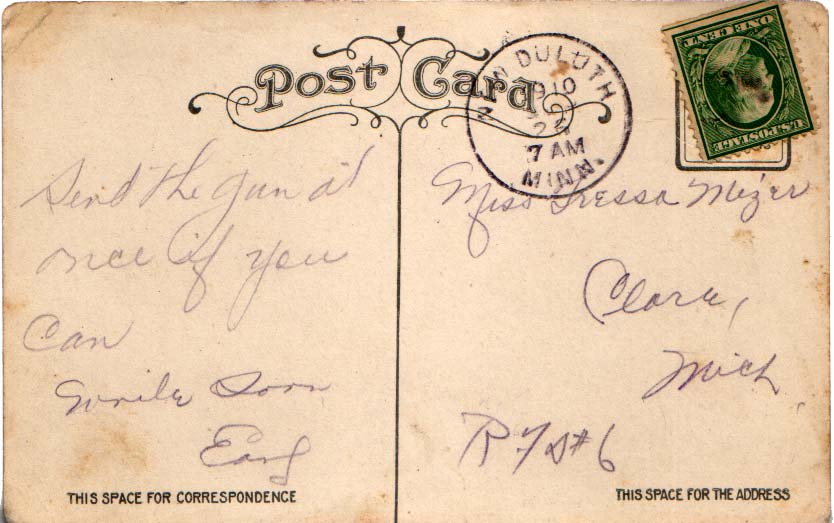 Post Card
NEW DULUTH
1910
25
7 AM
MINN.
ONE CENT
U.S. POSTAGE
Send the gun at
once if you
can
write soon
Earl
Miss Tressa Mezer
Clare,
Mich
R F D #6
THIS SPACE FOR CORRESPONDENCE
THIS SPACE FOR THE ADDRESS